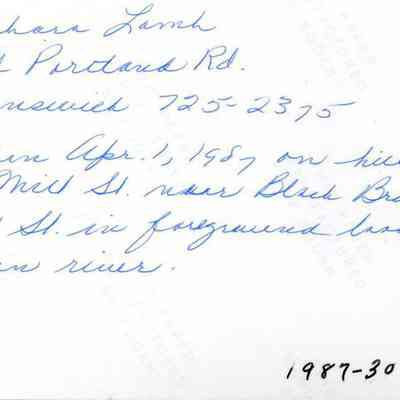 bara Lamb
Portland Rd.
unswick 725-2375
en Apr. 1, 1987 on hill
Mill St. near Black Br
St. in foreground loo
n river.
1987-30